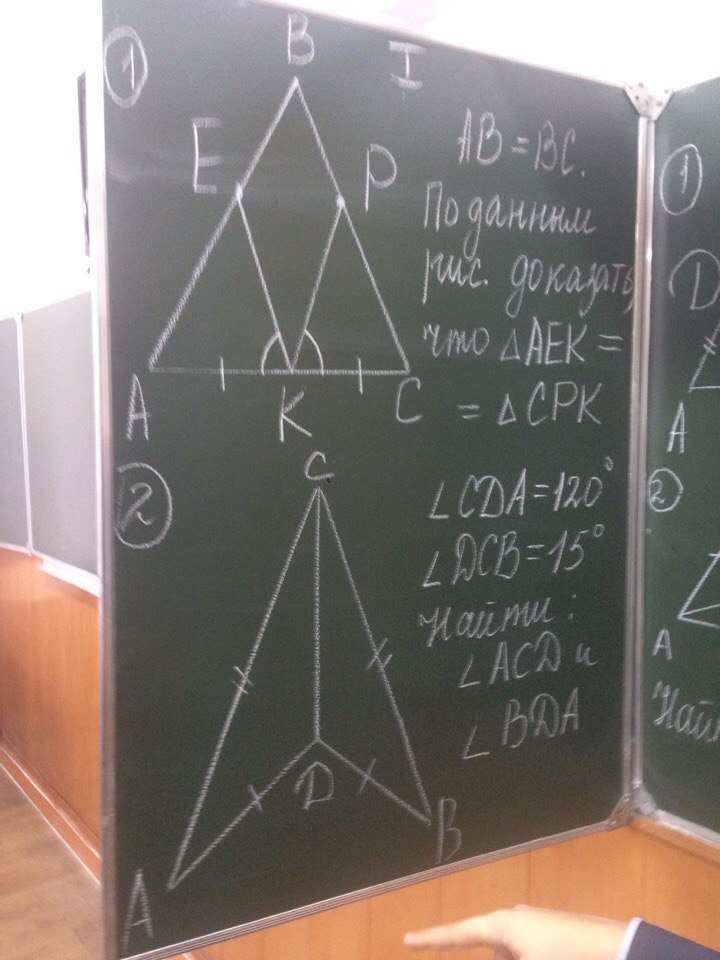 I
1
B
E
P
A
K
C
AB = BC.
По данным
рис. доказать,
что △AEK =
= △CPK
2
C
D
A
B
∠CDA = 120°
∠DCB = 15°
Найти:
∠ACD и
∠BDA
1
D
A
2
A
Най